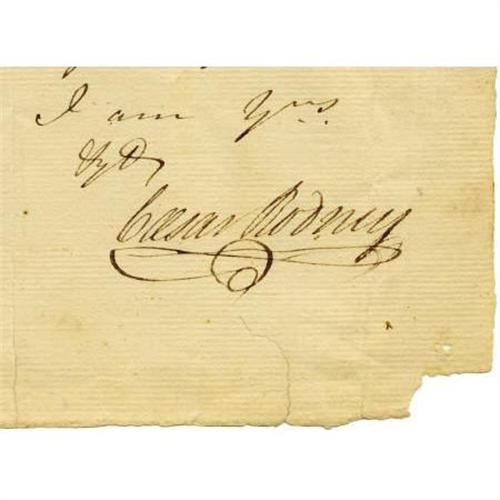 I am Yrs.
Caesar Rodney